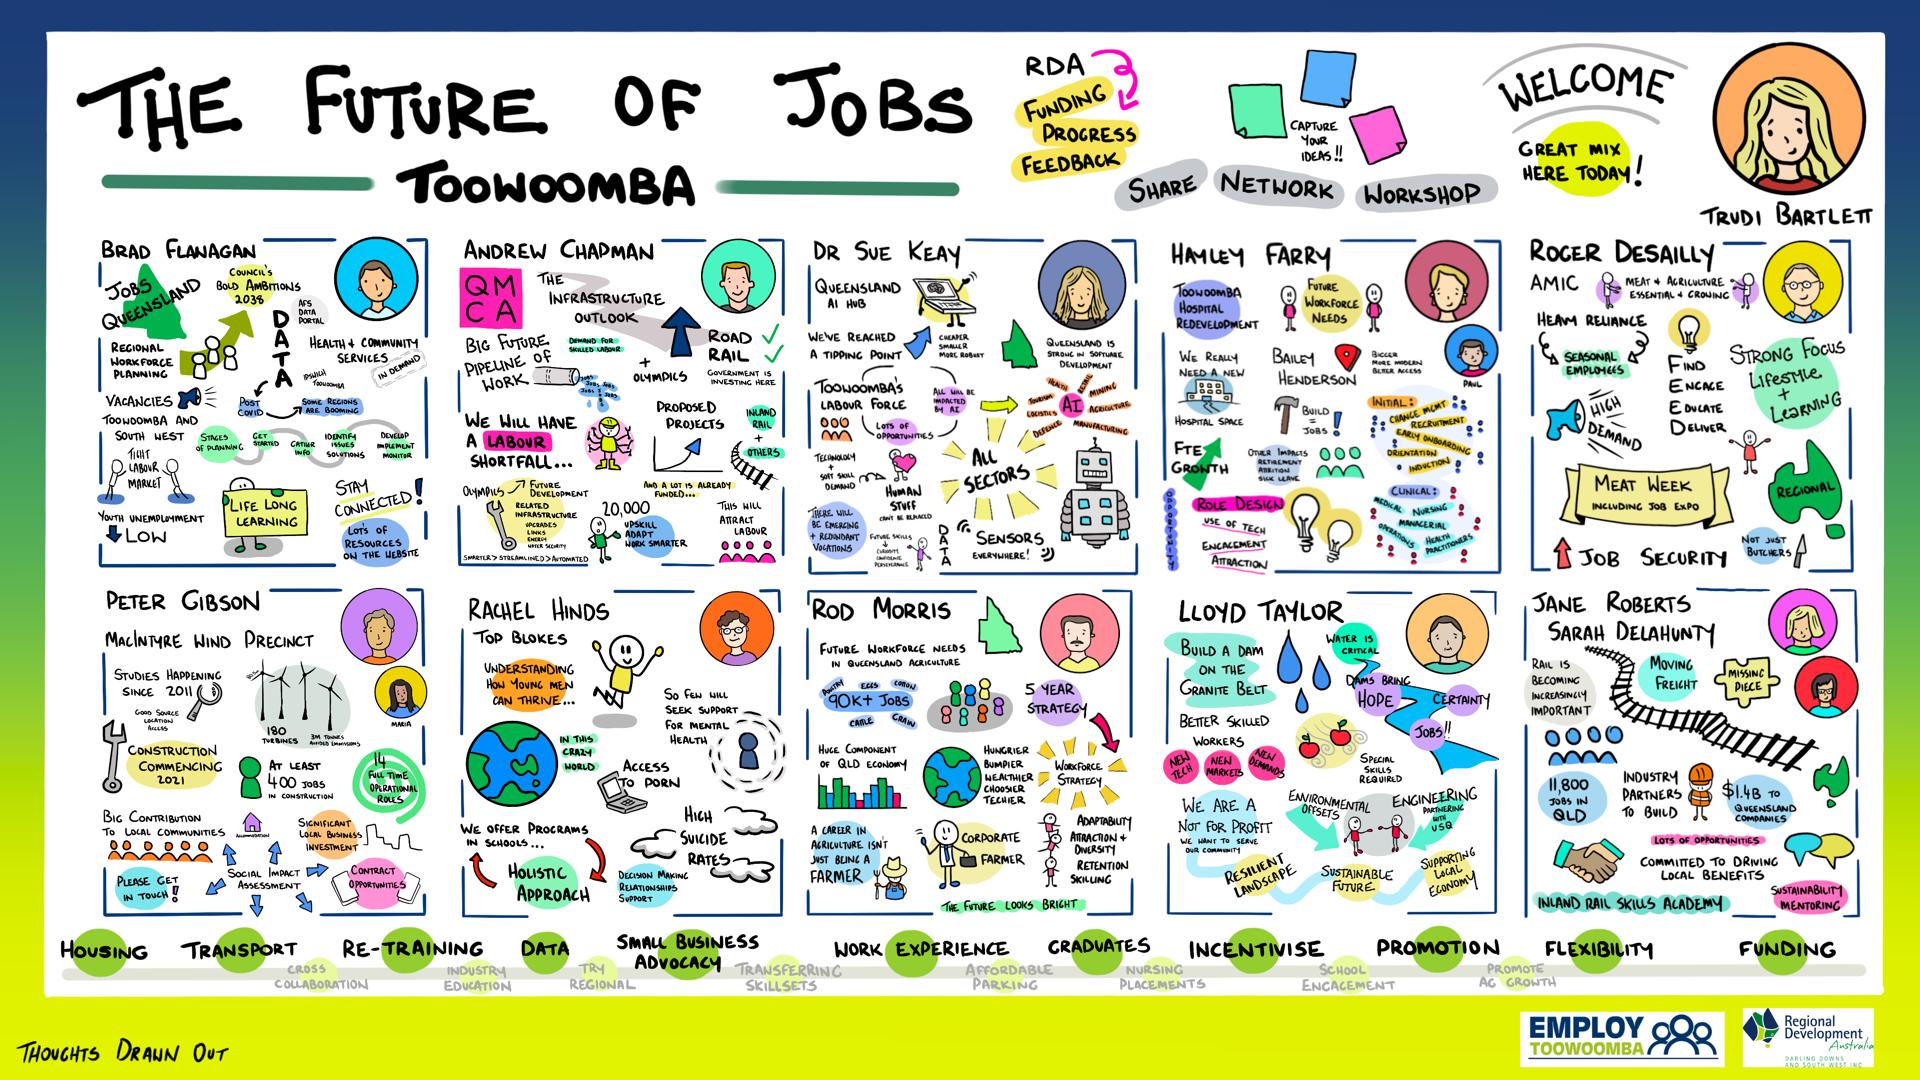 THE FUTURE OF JOBS
TOOWOOMBA
RDA
FUNDING
PROGRESS
FEEDBACK
CAPTURE
YOUR
IDEAS!!
SHARE
NETWORK
WORKSHOP
WELCOME
GREAT MIX
HERE TODAY!
TRUDI BARTLETT
BRAD FLANAGAN
JOBS
QUEENSLAND
COUNCIL'S
BOLD AMBITIONS
2038
AFS
DATA
PORTAL
DATA
REGIONAL
WORKFORCE
PLANNING
HEALTH & COMMUNITY
SERVICES
IN DEMAND
IPSWICH
TOOWOOMBA
VACANCIES
POST
COVID
SOME REGIONS
ARE BOOMING
TOOWOOMBA AND
SOUTH WEST
STAGES
OF PLANNING
GET
STARTED
GATHER
INFO
IDENTIFY
ISSUES
SOLUTIONS
DEVELOP
IMPLEMENT
MONITOR
TIGHT
LABOUR
MARKET
LIFE LONG
LEARNING
STAY
CONNECTED!
YOUTH UNEMPLOYMENT
LOW
LOTS OF
RESOURCES
ON THE WEBSITE
ANDREW CHAPMAN
QM
CA
THE
INFRASTRUCTURE
OUTLOOK
BIG FUTURE
PIPELINE OF
WORK
DEMAND FOR
SKILLED LABOUR
JOBS
+
OLYMPICS
ROAD
RAIL
GOVERNMENT IS
INVESTING HERE
WE WILL HAVE
A LABOUR
SHORTFALL...
PROPOSED
PROJECTS
INLAND
RAIL
+
OTHERS
AND A LOT IS ALREADY
FUNDED...
OLYMPICS
FUTURE
DEVELOPMENT
RELATED
INFRASTRUCTURE
UPGRADES
LINKS
ENERGY
WATER SECURITY
SMARTER > STREAMLINED > AUTOMATED
20,000
UPSKILL
ADAPT
WORK SMARTER
THIS WILL
ATTRACT
LABOUR
DR SUE KEAY
QUEENSLAND
AI HUB
WE'VE REACHED
A TIPPING POINT
CHEAPER
SMALLER
MORE ROBUST
QUEENSLAND IS
STRONG IN SOFTWARE
DEVELOPMENT
TOOWOOMBA'S
LABOUR FORCE
ALL WILL BE
IMPACTED
BY AI
LOTS OF
OPPORTUNITIES
AI
HEALTH
RETAIL
MINING
TOURISM
LOGISTICS
AGRICULTURE
DEFENCE
MANUFACTURING
TECHNOLOGY
+
SOFT SKILL
DEMAND
HUMAN
STUFF
CAN'T BE REPLACED
ALL
SECTORS
THERE WILL
BE EMERGING
+ REDUNDANT
VOCATIONS
FUTURE SKILLS
CURIOSITY
CONFIDENCE
PERSEVERANCE
DATA
SENSORS
EVERYWHERE!
HAYLEY FARRY
TOOWOOMBA
HOSPITAL
REDEVELOPMENT
FUTURE
WORKFORCE
NEEDS
PAUL
WE REALLY
NEED A NEW
HOSPITAL SPACE
BAILEY
HENDERSON
BIGGER
MORE MODERN
BETTER ACCESS
BUILD
=
JOBS!
INITIAL:
CHANGE MGMT
RECRUITMENT
EARLY ONBOARDING
ORIENTATION
INDUCTION
FTE
GROWTH
OTHER IMPACTS
RETIREMENT
ATTRITION
SICK LEAVE
OPPORTUNITY
ROLE DESIGN
USE OF TECH
ENGAGEMENT
ATTRACTION
CLINICAL:
MEDICAL
NURSING
MANAGERIAL
OPERATIONS
HEALTH
PRACTITIONERS
ROGER DESAILLY
AMIC
MEAT & AGRICULTURE
ESSENTIAL & GROWING
HEAVY RELIANCE
SEASONAL
EMPLOYEES
FIND
ENGAGE
EDUCATE
DELIVER
STRONG FOCUS
LIFESTYLE
+
LEARNING
HIGH
DEMAND
MEAT WEEK
INCLUDING JOB EXPO
REGIONAL
JOB SECURITY
NOT JUST
BUTCHERS
PETER GIBSON
MACINTYRE WIND PRECINCT
STUDIES HAPPENING
SINCE 2011
GOOD SOURCE
LOCATION
ACCESS
180
TURBINES
3M TONNES
AVOIDED EMISSIONS
MARIA
CONSTRUCTION
COMMENCING
2021
AT LEAST
400 JOBS
IN CONSTRUCTION
14
FULL TIME
OPERATIONAL
ROLES
BIG CONTRIBUTION
TO LOCAL COMMUNITIES
ACCOMMODATION
SIGNIFICANT
LOCAL BUSINESS
INVESTMENT
PLEASE GET
IN TOUCH!
SOCIAL IMPACT
ASSESSMENT
CONTRACT
OPPORTUNITIES
RACHEL HINDS
TOP BLOKES
UNDERSTANDING
HOW YOUNG MEN
CAN THRIVE...
SO FEW WILL
SEEK SUPPORT
FOR MENTAL
HEALTH
IN THIS
CRAZY
WORLD
ACCESS
TO PORN
WE OFFER PROGRAMS
IN SCHOOLS...
HIGH
SUICIDE
RATES
HOLISTIC
APPROACH
DECISION MAKING
RELATIONSHIPS
SUPPORT
ROD MORRIS
FUTURE WORKFORCE NEEDS
IN QUEENSLAND AGRICULTURE
POULTRY
EGGS
COTTON
90K+ JOBS
CATTLE
GRAIN
5 YEAR
STRATEGY
HUGE COMPONENT
OF QLD ECONOMY
HUNGRIER
BUMPIER
WEALTHIER
CHOOSIER
TECHIER
WORKFORCE
STRATEGY
A CAREER IN
AGRICULTURE ISN'T
JUST BEING A
FARMER
CORPORATE
FARMER
ADAPTABILITY
ATTRACTION +
DIVERSITY
RETENTION
SKILLING
THE FUTURE LOOKS BRIGHT
LLOYD TAYLOR
BUILD A DAM
ON THE
GRANITE BELT
WATER IS
CRITICAL
DAMS BRING
HOPE
CERTAINTY
JOBS!!
BETTER SKILLED
WORKERS
NEW
TECH
NEW
MARKETS
NEW
DEMANDS
SPECIAL
SKILLS
REQUIRED
WE ARE A
NOT FOR PROFIT
WE WANT TO SERVE
OUR COMMUNITY
ENVIRONMENTAL
OFFSETS
ENGINEERING
PARTNERING
WITH
USQ
RESILIENT
LANDSCAPE
SUSTAINABLE
FUTURE
SUPPORTING
LOCAL
ECONOMY
JANE ROBERTS
SARAH DELAHUNTY
RAIL IS
BECOMING
INCREASINGLY
IMPORTANT
MOVING
FREIGHT
MISSING
PIECE
11,800
JOBS IN
QLD
INDUSTRY
PARTNERS
TO BUILD
$1.4B TO
QUEENSLAND
COMPANIES
LOTS OF OPPORTUNITIES
COMMITTED TO DRIVING
LOCAL BENEFITS
INLAND RAIL SKILLS ACADEMY
SUSTAINABILITY
MENTORING
HOUSING
TRANSPORT
RE-TRAINING
DATA
SMALL BUSINESS
ADVOCACY
WORK EXPERIENCE
GRADUATES
INCENTIVISE
PROMOTION
FLEXIBILITY
FUNDING
CROSS
COLLABORATION
INDUSTRY
EDUCATION
TRY
REGIONAL
TRANSFERRING
SKILLSETS
AFFORDABLE
PARKING
NURSING
PLACEMENTS
SCHOOL
ENGAGEMENT
PROMOTE
AG GROWTH
THOUGHTS DRAWN OUT
EMPLOY
TOOWOOMBA
Regional
Development
Australia
DARLING DOWNS
AND SOUTH WEST INC